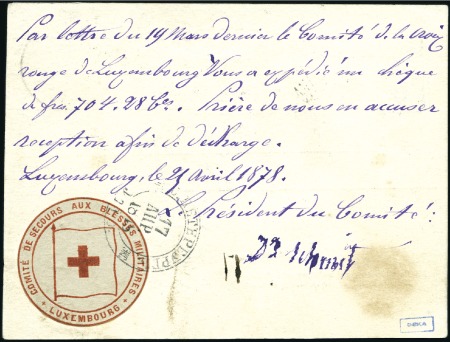 Par lettre du 19 Mars dernier le Comité de la croix
rouge de Luxembourg Vous a expédié un chèque
de frs. 704.28 Cs. Prière de nous en accuser
reception afin de décharge.
Luxembourg, le 21 Avril 1878.
Le Président du Comité:
Dr Schmit
COMITÉ DE SECOURS AUX BLESSÉS MILITAIRES
LUXEMBOURG
17
АПР